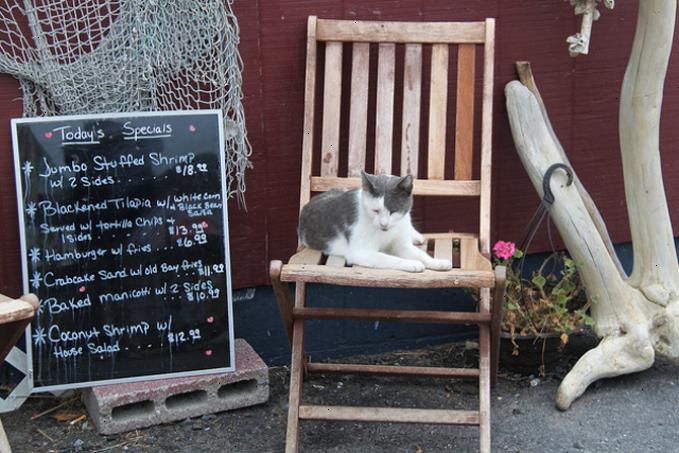 Today's Specials
* Jumbo Stuffed Shrimp
w/ 2 Sides..... $18.99
* Blackened Tilapia w/ white corn
+ Black Bean
Salsa
Served w/ tortilla chips +
1 Sides... $13.99
* Hamburger w/ fries... $6.99
* Crabcake Sand w/ old Bay fries $11.99
* Baked Manicotti w/ 2 Sides
... $10.99
* Coconut Shrimp w/
House Salad..... $12.99